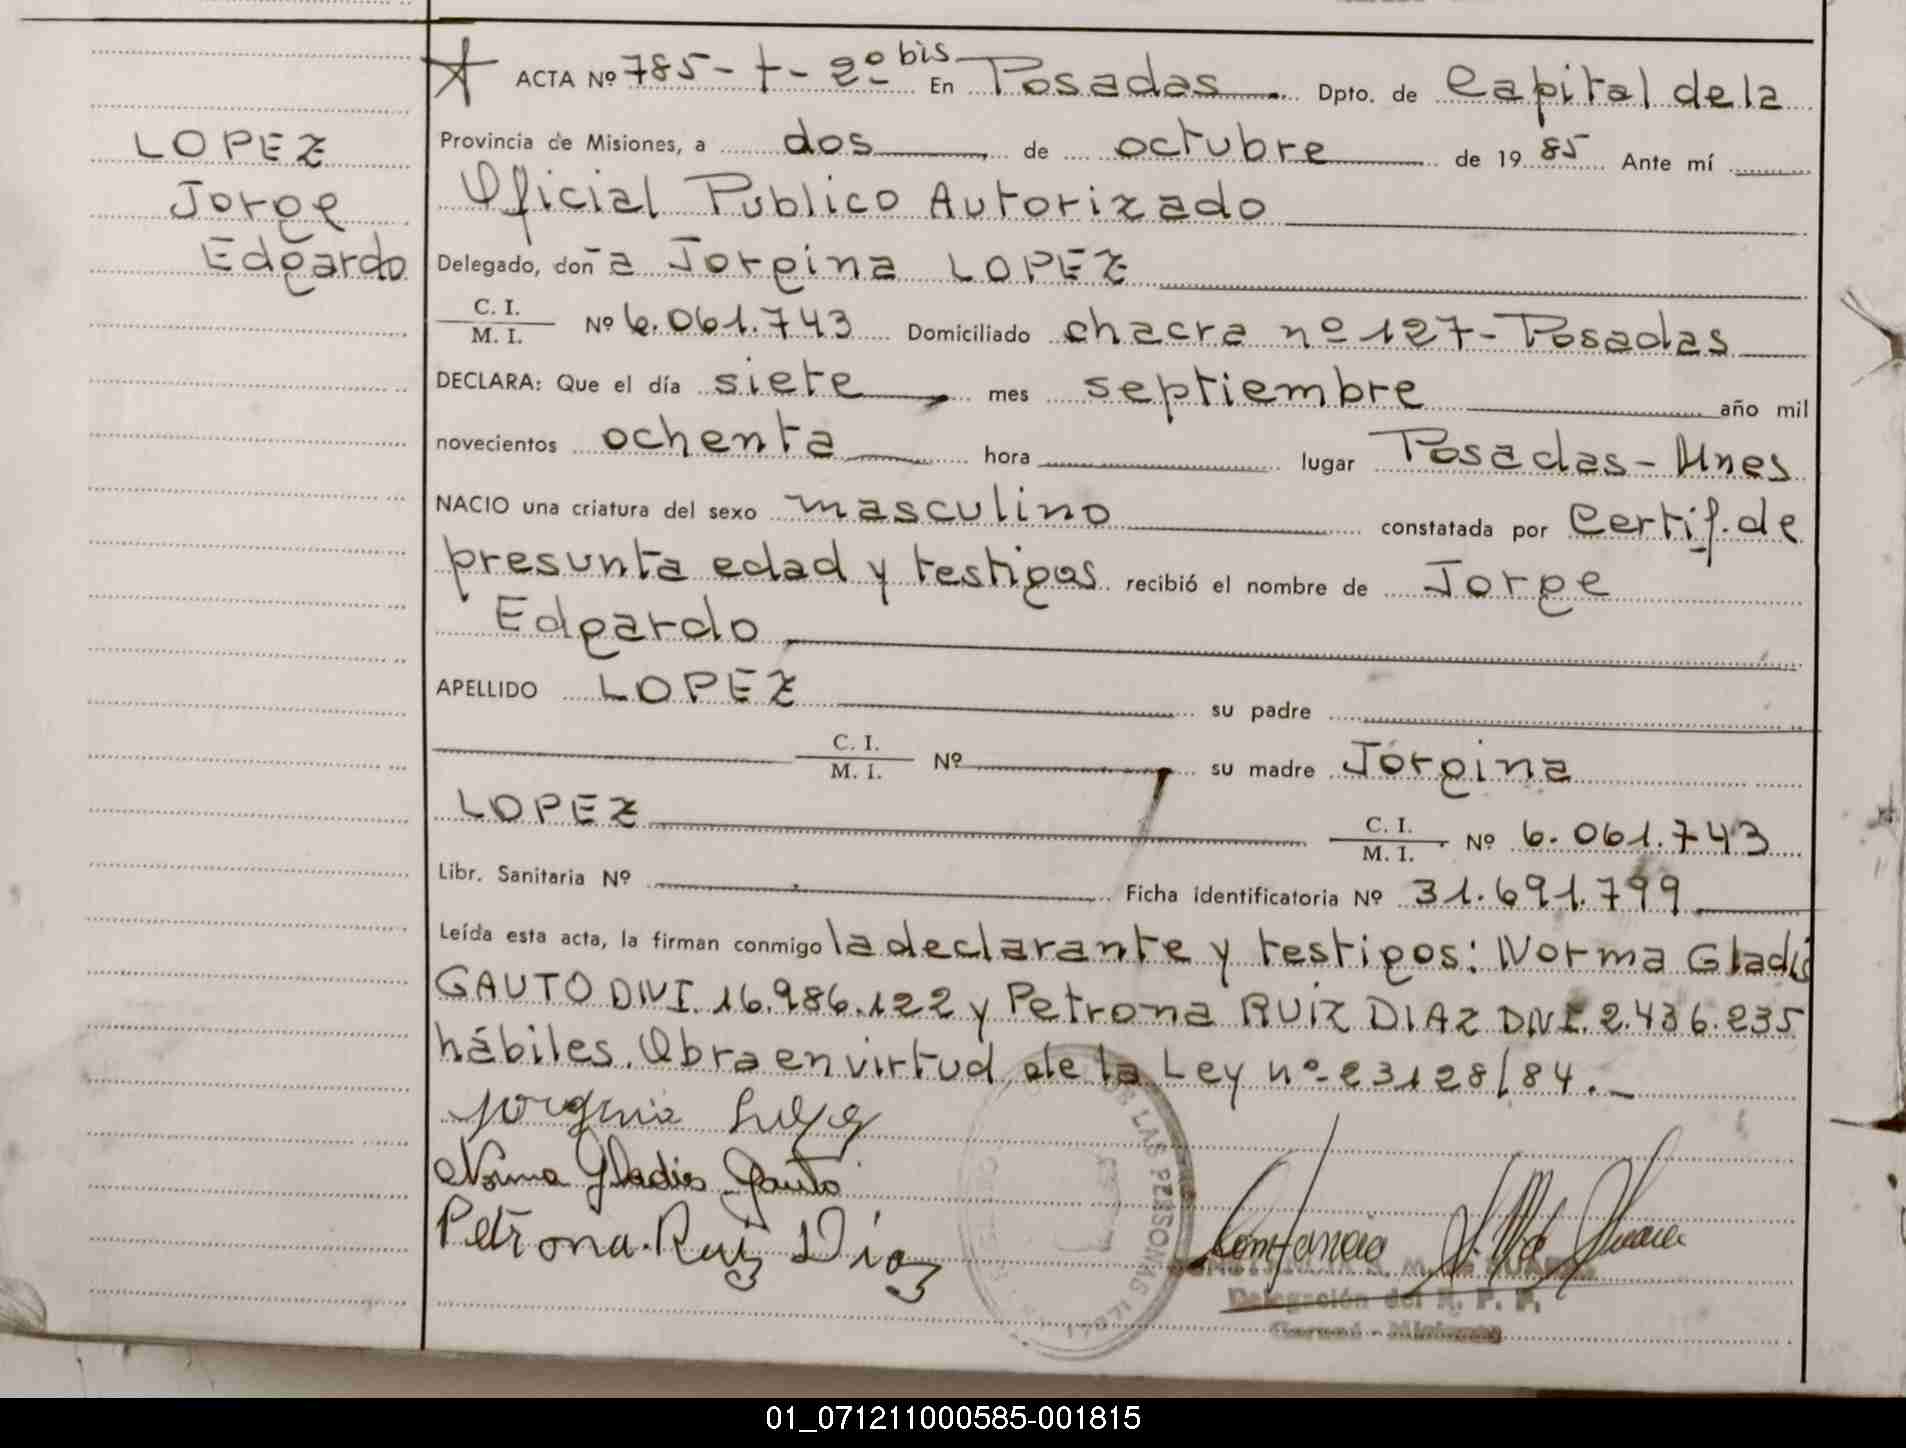 ACTA Nº 785-t-2º bis En Posadas Dpto. de Capital de la
LOPEZ
Jorge
Edgardo
Provincia de Misiones, a dos de octubre de 1985 Ante mí
Oficial Publico Autorizado
Delegado, doña Jorgina LOPEZ
C. I.
M. I. Nº 6.061.743 Domiciliado chacra nº 127-Posadas
DECLARA: Que el día siete mes septiembre año mil
novecientos ochenta hora lugar Posadas-Mnes
NACIO una criatura del sexo masculino constatada por Certif. de
presunta edad y testigos recibió el nombre de Jorge
Edgardo
APELLIDO LOPEZ su padre
C. I.
M. I. Nº su madre Jorgina
LOPEZ C. I.
M. I. Nº 6.061.743
Libr. Sanitaria Nº Ficha identificatoria Nº 31.691.799
Leída esta acta, la firman conmigo la declarante y testigos: Norma Gladis
GAUTO DNI. 16.986.122 y Petrona RUIZ DIAZ DNI. 2.436.235
hábiles. Obra en virtud de la Ley nº 23128/84.
Jorgina Lopez
Norma Gladis Gauto
Petrona Ruiz Diaz
DE LAS PERSONAS
Delegación del R. P. P.
Misiones
01_071211000585-001815